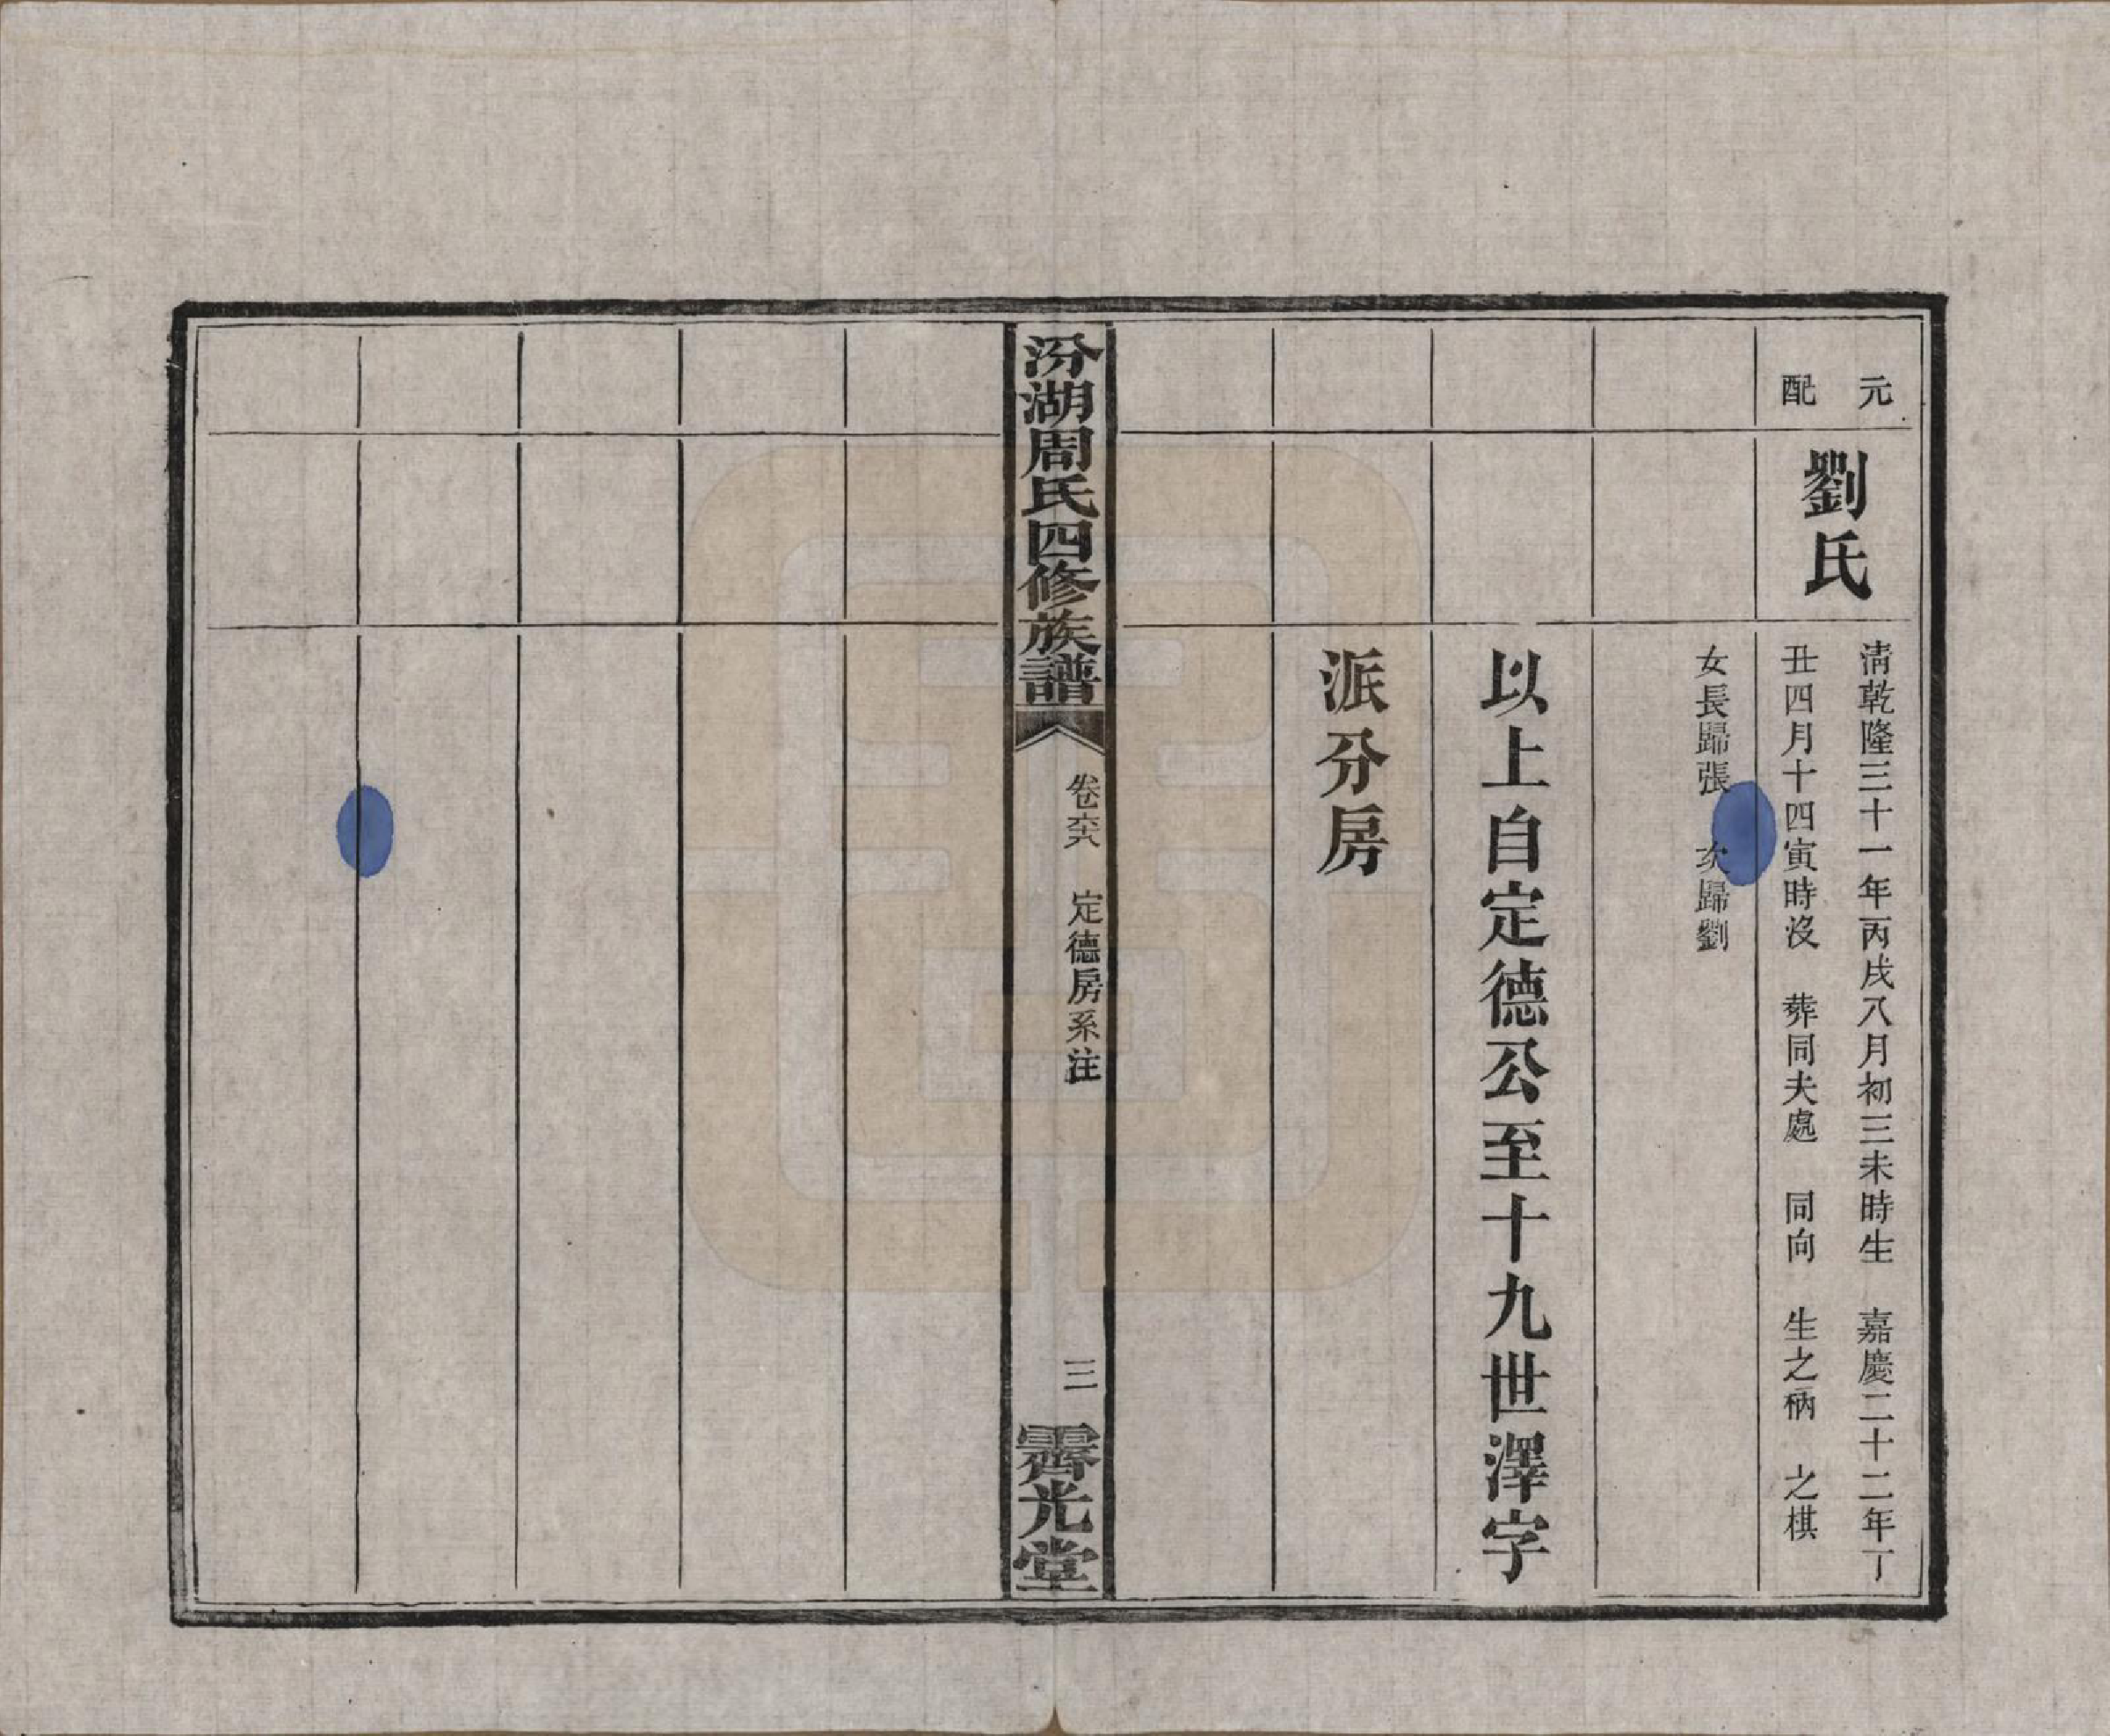 元配
劉氏
清乾隆三十一年丙戌八月初三未時生 嘉慶二十二年丁
丑四月十四寅時沒 葬同夫處 同向 生之柄 之棋
女長歸張 次歸劉
以上自定德公至十九世澤字
派分房
汾湖周氏四修族譜
卷六六 定德房系注
三
霽光堂